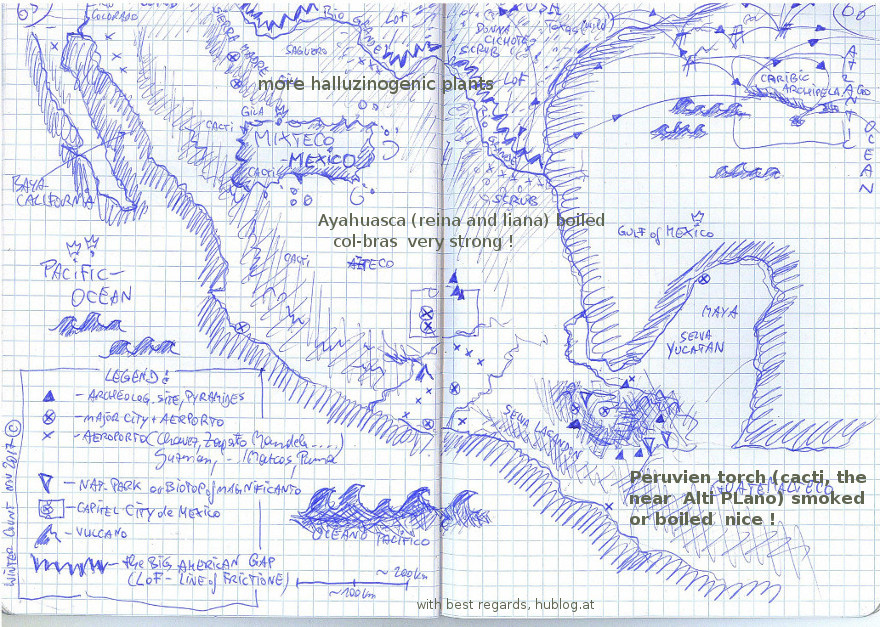 COLORADO
SIERRA MADRE
RIO GRANDE
LOF
SAGUERO
DONNA
CICHOTE
SCRUB
USA
LOF
CARIBIC
ARCHIPELAGO
ATLANTIC
OCEAN
more halluzinogenic plants
GILA
CACTI
MIXTECO
-MEXICO
CACTI
RIO GRANDE
SCRUB
BAYA-
CALIFORNIA
Ayahuasca (reina and liana) boiled
col-bras very strong !
GULF of MEXICO
CACTI
AZTECO
PACIFIC-
OCEAN
MAYA
SELVA
YUCATAN
LEGEND:
- ARCHEOLOG. SITE, PYRAMIDES
- MAJOR CITY + AERPORTO
- AEROPORTO (Chavez, Zapato Mandela ....)
Guzman, .. /Marcos Puma
- NAT. PARK or BIOTOP of MAGNIFICANTO
- CAPITEL CITY de MEXICO
- VULCANO
- the BIG AMERICAN GAP
(LOF - LINE of FRICTIONE)
WINTER COUNT NOV 2017 ©
~ 200 km
~100km
OCEANO PACIFICO
SELVA LACANDON
Peruvien torch (cacti, the
near Alti PLano) smoked
or boiled nice !
with best regards, hublog.at